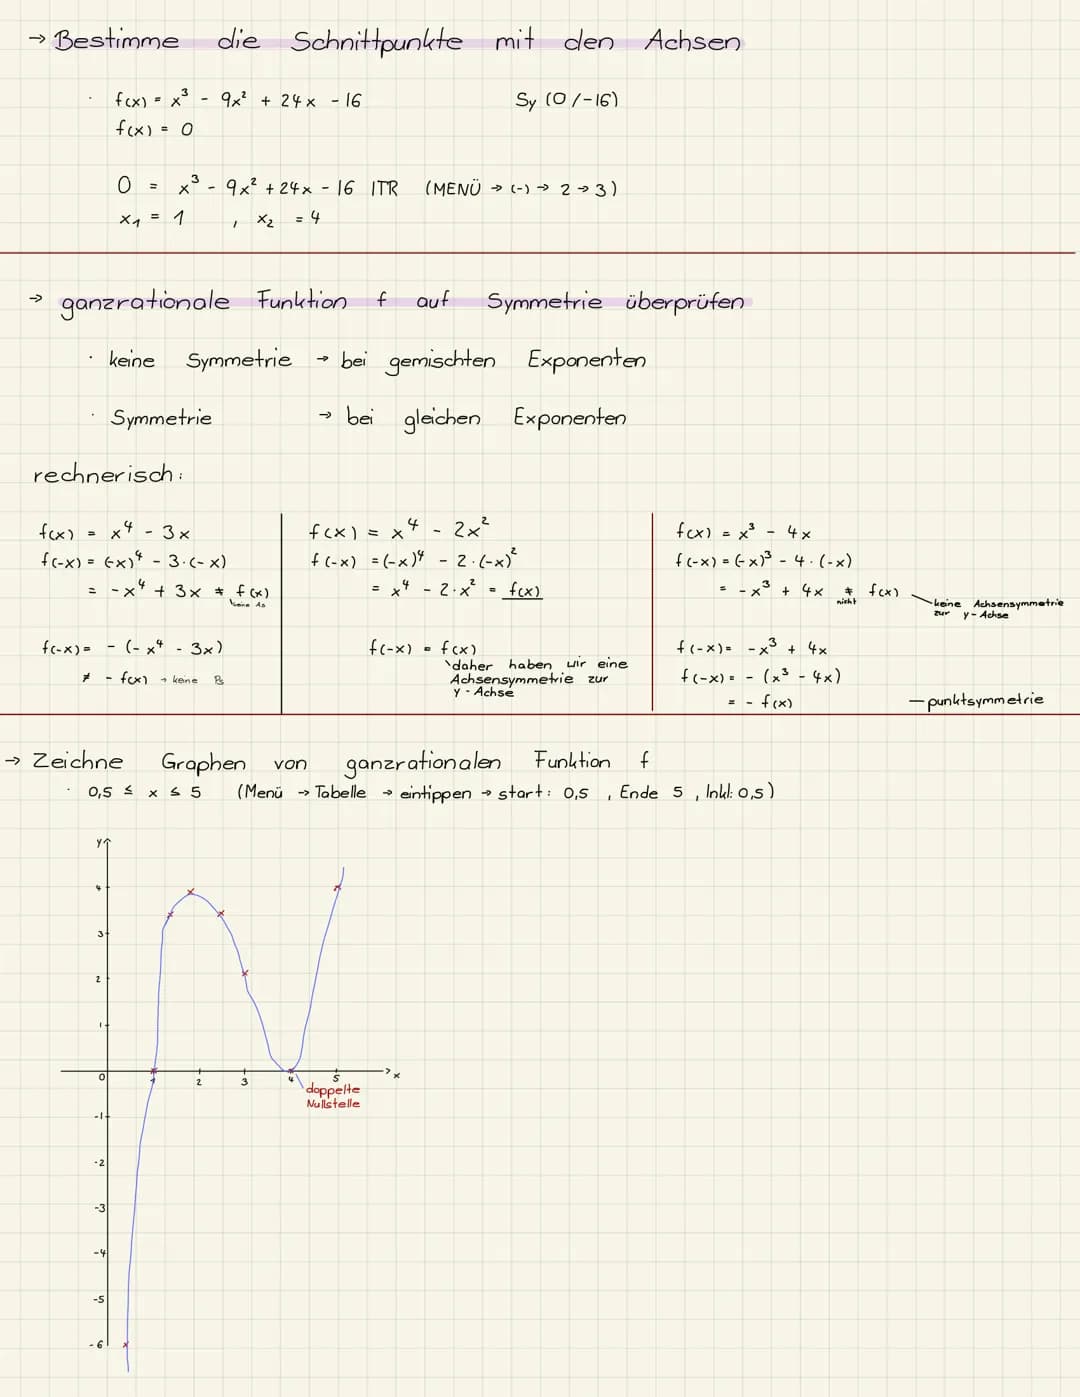 → Bestimme die Schnittpunkte mit den Achsen
· f(x) = x³ - 9x² + 24x - 16 Sy (0/-16)
f(x) = 0
0 = x³ - 9x² + 24x - 16 |TR (MENÜ → (-) → 2 → 3)
x₁ = 1 , x₂ = 4
→ ganzrationale Funktion f auf Symmetrie überprüfen
· keine Symmetrie → bei gemischten Exponenten
· Symmetrie → bei gleichen Exponenten
rechnerisch:
f(x) = x⁴ - 3x
f(-x) = (-x)⁴ - 3·(-x)
= -x⁴ + 3x ≠ f(x)
keine As
f(-x) = - (-x⁴ - 3x)
≠ - f(x) → keine Ps
f(x) = x⁴ - 2x²
f(-x) = (-x)⁴ - 2·(-x)²
= x⁴ - 2·x² = f(x)
f(-x) = f(x)
daher haben wir eine
Achsensymmetrie zur
y-Achse
f(x) = x³ - 4x
f(-x) = (-x)³ - 4·(-x)
= -x³ + 4x ≠ f(x)
nicht
keine Achsensymmetrie
zur y-Achse
f(-x) = -x³ + 4x
f(-x) = - (x³ - 4x)
= - f(x) — punktsymmetrie
→ Zeichne Graphen von ganzrationalen Funktion f
· 0,5 ≤ x ≤ 5 (Menü → Tabelle → eintippen → start: 0,5 , Ende 5 , Inkl: 0,5)
y
4
3
2
1
0 1 2 3 4 5 x
doppelte
Nullstelle
-1
-2
-3
-4
-5
-6